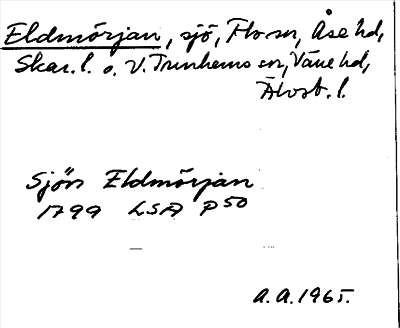 Eldmörjan, sjö, Flo sn, Åse hd,
Skar. l. o. V. Tunhems sn, Väne hd,
Älvsb. l.
Sjön Eldmörjan
1799 LSA P50
A.A. 1965.